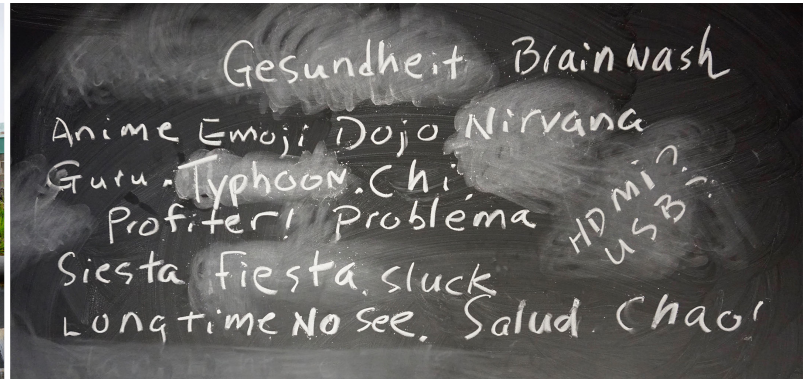 Gesundheit Brainwash
Anime Emoji Dojo Nirvana
Guru. Typhoon. Chi.
Profiter! Problema
HDMI?
USB?
Siesta fiesta. sluck
Longtime No see. Salud. Chao!